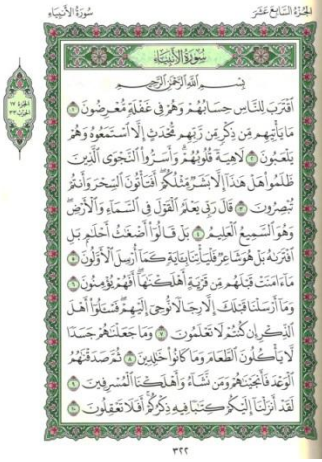 الجزء السابع عشر
سورة الأنبياء
سورة الأنبياء
بسم الله الرحمن الرحيم
ٱقْتَرَبَ لِلنَّاسِ حِسَابُهُمْ وَهُمْ فِي غَفْلَةٍ مُّعْرِضُونَ ١
مَا يَأْتِيهِم مِّن ذِكْرٍ مِّن رَّبِّهِم مُّحْدَثٍ إِلَّا ٱسْتَمَعُوهُ وَهُمْ
يَلْعَبُونَ ٢ لَاهِيَةً قُلُوبُهُمْ وَأَسَرُّوا۟ ٱلنَّجْوَى ٱلَّذِينَ
ظَلَمُوا۟ هَلْ هَٰذَآ إِلَّا بَشَرٌ مِّثْلُكُمْ أَفَتَأْتُونَ ٱلسِّحْرَ وَأَنتُمْ
تُبْصِرُونَ ٣ قَالَ رَبِّي يَعْلَمُ ٱلْقَوْلَ فِي ٱلسَّمَآءِ وَٱلْأَرْضِ
وَهُوَ ٱلسَّمِيعُ ٱلْعَلِيمُ ٤ بَلْ قَالُوٓا۟ أَضْغَٰثُ أَحْلَٰمٍۭ بَلِ
ٱفْتَرَىٰهُ بَلْ هُوَ شَاعِرٌ فَلْيَأْتِنَا بِـَٔايَةٍ كَمَآ أُرْسِلَ ٱلْأَوَّلُونَ ٥
مَآ ءَامَنَتْ قَبْلَهُم مِّن قَرْيَةٍ أَهْلَكْنَٰهَآ أَفَهُمْ يُؤْمِنُونَ ٦
وَمَآ أَرْسَلْنَا قَبْلَكَ إِلَّا رِجَالًا نُّوحِيٓ إِلَيْهِمْ فَسْـَٔلُوٓا۟ أَهْلَ
ٱلذِّكْرِ إِن كُنتُمْ لَا تَعْلَمُونَ ٧ وَمَا جَعَلْنَٰهُمْ جَسَدًا
لَّا يَأْكُلُونَ ٱلطَّعَامَ وَمَا كَانُوا۟ خَٰلِدِينَ ٨ ثُمَّ صَدَقْنَٰهُمُ
ٱلْوَعْدَ فَأَنجَيْنَٰهُمْ وَمَن نَّشَآءُ وَأَهْلَكْنَا ٱلْمُسْرِفِينَ ٩
لَقَدْ أَنزَلْنَآ إِلَيْكُمْ كِتَٰبًا فِيهِ ذِكْرُكُمْ أَفَلَا تَعْقِلُونَ ١٠
الجزء ١٧
الحزب ٣٣
٣٢٢